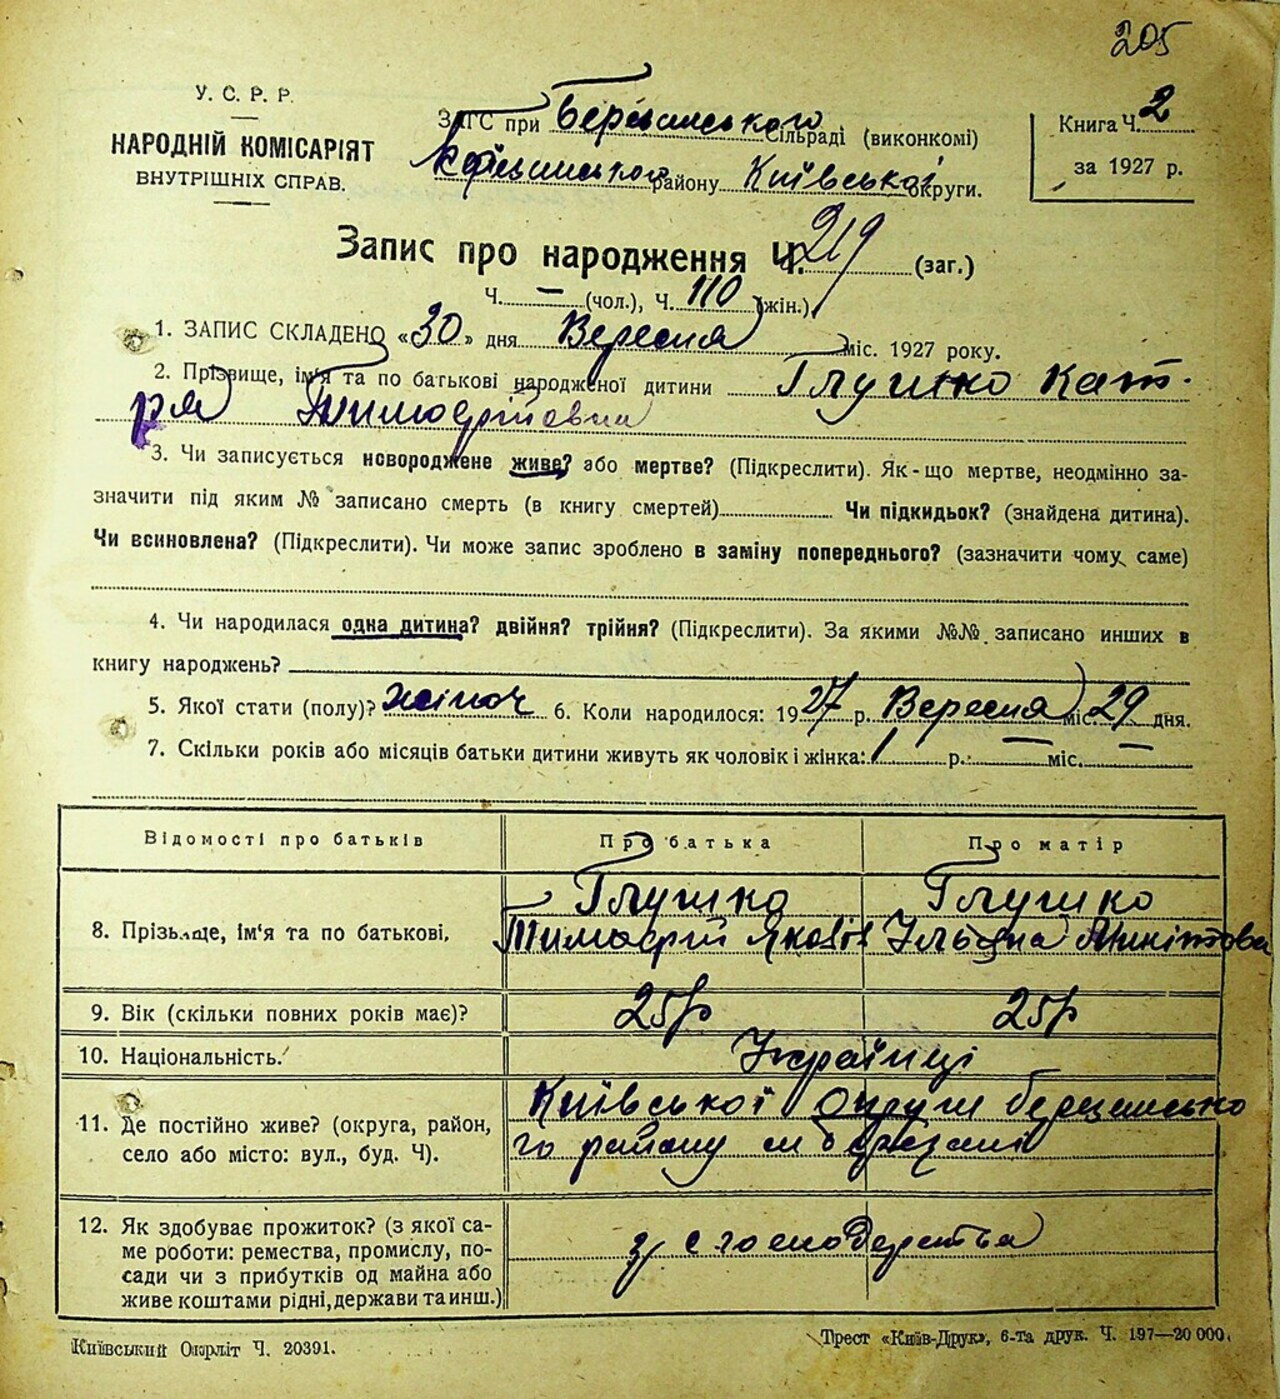 205
У. С. Р. Р.
НАРОДНІЙ КОМІСАРІЯТ
ВНУТРІШНІХ СПРАВ.
ЗАГС при Березанського сільраді (виконкомі)
району Київської округи.
Книга Ч. 2
за 1927 р.
Запис про народження Ч. 219 (заг.)
Ч. — (чол.), Ч. 110 (жін.)
1. ЗАПИС СКЛАДЕНО «30» дня Вересня міс. 1927 року.
2. Прізвище, ім'я та по батькові народженої дитини Глушко Кат-
ря Тимофіївна
3. Чи записується новороджене живе? або мертве? (Підкреслити). Як-що мертве, неодмінно за-
значити під яким № записано смерть (в книгу смертей) Чи підкидьок? (знайдена дитина).
Чи всиновлена? (Підкреслити). Чи може запис зроблено в заміну попереднього? (зазначити чому саме)
4. Чи народилася одна дитина? двійня? трійня? (Підкреслити). За якими №№ записано инших в
книгу народжень?
5. Якої стати (полу)? жіноч 6. Коли народилося: 1927 р. Вересня міс. 29 дня.
7. Скільки років або місяців батьки дитини живуть як чоловік і жінка: 1 р. — міс. —
Відомості про батьків Про батька Про матір
8. Прізвище, ім'я та по батькові. Глушко Глушко
Тимофій Яковів Ульяна Микітова
9. Вік (скільки повних років має)? 25 р 25 р
10. Національність. Українці
11. Де постійно живе? (округа, район,
село або місто: вул., буд. Ч). Київської Округи березансько
го району м березані
12. Як здобуває прожиток? (з якої са-
ме роботи: ремества, промислу, по-
сади чи з прибутків од майна або
живе коштами рідні, держави та инш.) з с господарства
Київський Окрліт Ч. 20391.
Трест «Київ-Друк», 6-та друк. Ч. 197—20 000.